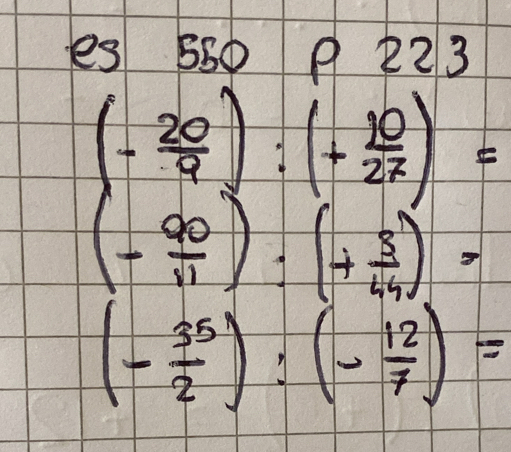 es 550 p 223
(- 20/9) : (+ 10/27) =
(- 90/11) : (+ 8/44) =
(- 35/2) : (- 12/7) =